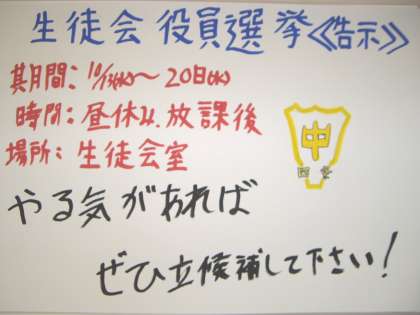 生徒会役員選挙《告示》
期間:10/13(水)~20日(水)
時間:昼休み、放課後
場所:生徒会室
中
やる気があれば
ぜひ立候補して下さい!